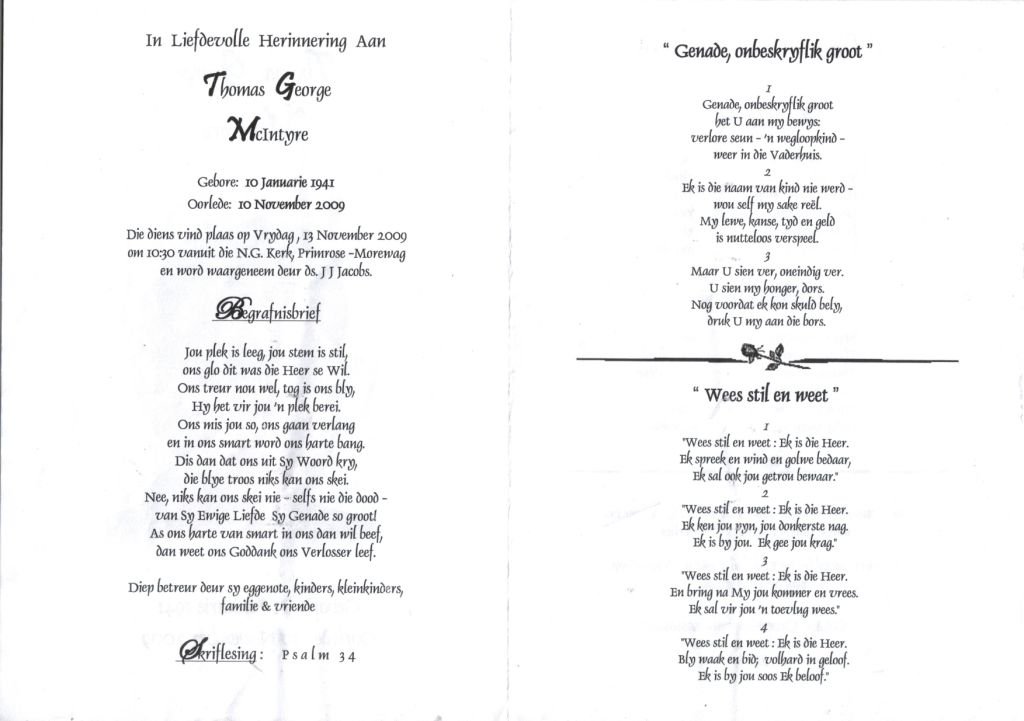 In Liefdevolle Herinnering Aan
Thomas George
McIntyre
Gebore: 10 Januarie 1941
Oorlede: 10 November 2009
Die diens vind plaas op Vrydag, 13 November 2009
om 10:30 vanuit die N.G. Kerk, Primrose -Morewag
en word waargeneem deur ds. J J Jacobs.
Begrafnisbrief
Jou plek is leeg, jou stem is stil,
ons glo dit was die Heer se Wil.
Ons treur nou wel, tog is ons bly,
Hy het vir jou 'n plek berei.
Ons mis jou so, ons gaan verlang
en in ons smart word ons harte bang.
Dis dan dat ons uit Sy Woord kry,
die blye troos niks kan ons skei.
Nee, niks kan ons skei nie - selfs nie die dood -
van Sy Ewige Liefde Sy Genade so groot!
As ons harte van smart in ons dan wil beef,
dan weet ons Goddank ons Verlosser leef.
Diep betreur deur sy eggenote, kinders, kleinkinders,
familie & vriende
Skriflesing: Psalm 34
" Genade, onbeskryflik groot "
1
Genade, onbeskryflik groot
het U aan my bewys:
verlore seun - 'n wegloopkind -
weer in die Vaderhuis.
2
Ek is die naam van kind nie werd -
wou self my sake reël.
My lewe, kanse, tyd en geld
is nutteloos verspeel.
3
Maar U sien ver, oneindig ver.
U sien my honger, dors.
Nog voordat ek kon skuld bely,
druk U my aan die bors.
" Wees stil en weet "
1
"Wees stil en weet : Ek is die Heer.
Ek spreek en wind en golwe bedaar,
Ek sal ook jou getrou bewaar."
2
"Wees stil en weet : Ek is die Heer.
Ek ken jou pyn, jou donkerste nag.
Ek is by jou. Ek gee jou krag."
3
"Wees stil en weet : Ek is die Heer.
En bring na My jou kommer en vrees.
Ek sal vir jou 'n toevlug wees."
4
"Wees stil en weet : Ek is die Heer.
Bly waak en bid; volhard in geloof.
Ek is by jou soos Ek beloof."